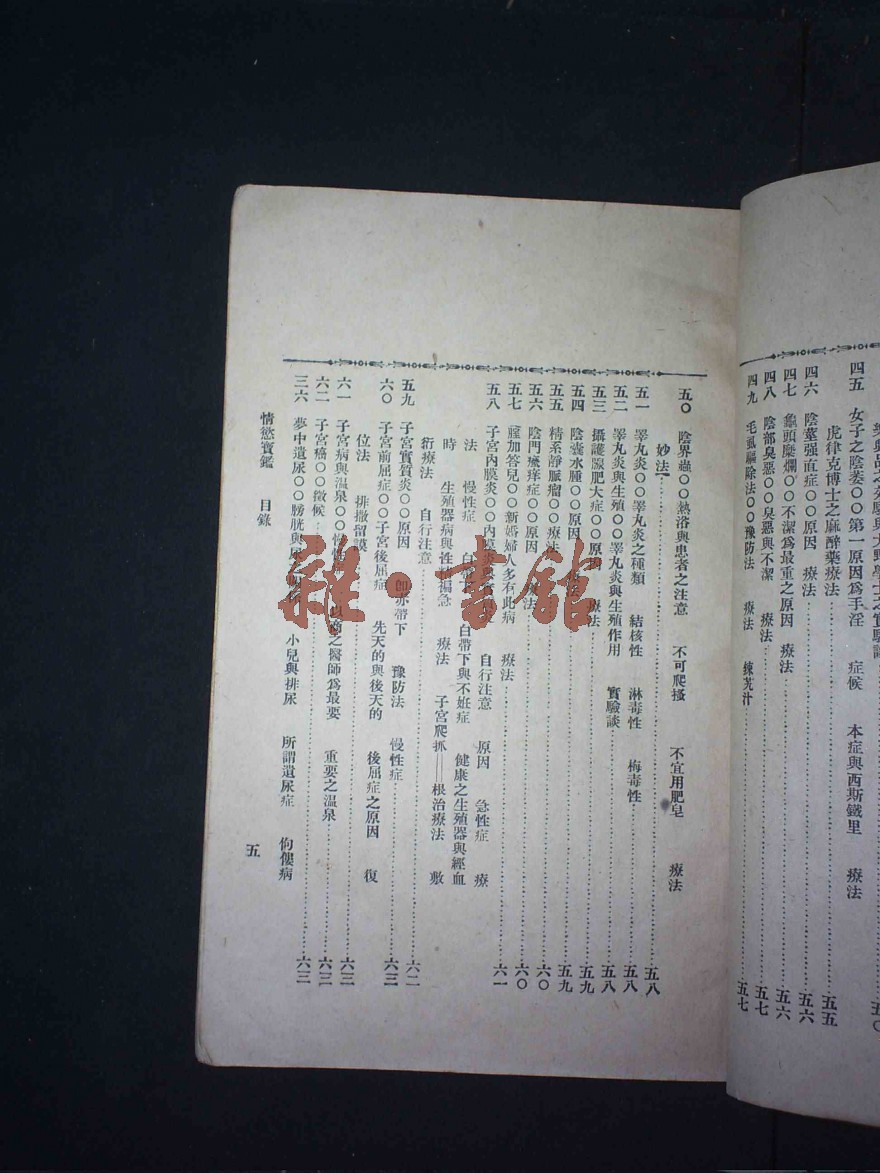 四五 女子之陰萎○○第一原因爲手淫 症候 本症與西斯鐵里 療法
虎律克博士之麻醉藥療法 五五
四六 陰莖强直症○○原因 療法 五六
四七 龜頭糜爛○○不潔爲最重之原因 療法 五六
四八 陰部臭惡○○臭惡與不潔 療法 五七
四九 毛虱驅除法○○豫防法 療法 五七
五〇 陰界蟲○○熱浴與患者之注意 不可爬搔 不宜用肥皂 療法
妙法 五八
五一 睪丸炎○○睪丸炎之種類 結核性 淋毒性 梅毒性 五八
五二 睪丸炎與生殖○○睪丸炎與生殖作用 實驗談 五八
五三 攝護腺肥大症○○原因 療法 五九
五四 陰囊水腫○○原因 療法 五九
五五 精系靜脈瘤○○療法 六〇
五六 陰門瘙痒症○○原因 療法 六〇
五七 膣加答兒○○新婚婦人多有此病 療法 六一
五八 子宮內膜炎○○內膜炎 自行注意 原因 急性症 療
法 慢性症 白帶下 白帶下與不姙症 健康之生殖器與經血
時 生殖器病與性 褊急 療法 子宮爬抓——根治療法 敷
衍療法 自行注意 六二
五九 子宮實質炎○○原因 卽赤帶下 豫防法 慢性症 六三
六〇 子宮前屈症○○子宮後屈症 先天的與後天的 後屈症之原因 復
位法 排撒留謨 六三
六一 子宮病與温泉○○ 之醫師爲最要 重要之温泉 六三
六二 子宮癌○○徵候 六三
三六 夢中遺尿○○膀胱與 小兒與排尿 所謂遺尿症 佝僂病
情慾寶鑑 目錄 五
雜·書館